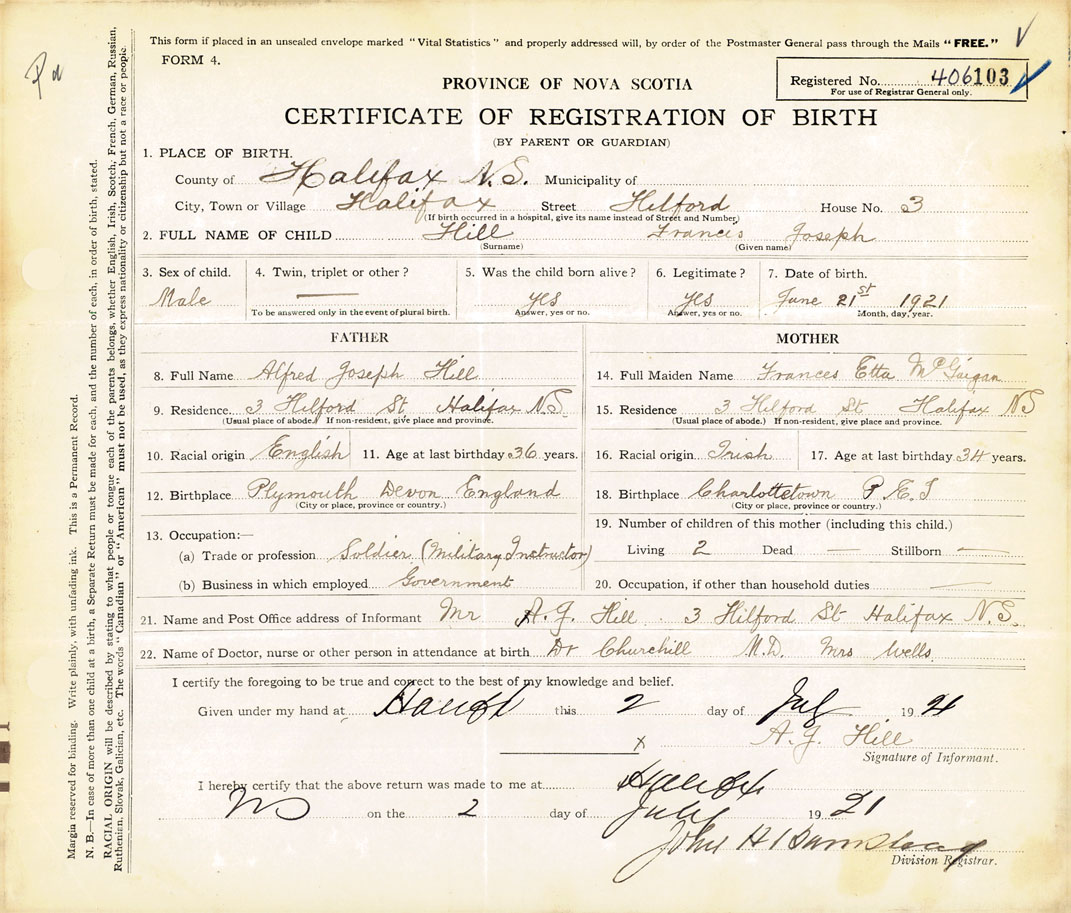 This form if placed in an unsealed envelope marked "Vital Statistics" and properly addressed will, by order of the Postmaster General pass through the Mails "FREE."
FORM 4.
PROVINCE OF NOVA SCOTIA
Registered No. 406103
For use of Registrar General only.
CERTIFICATE OF REGISTRATION OF BIRTH
(BY PARENT OR GUARDIAN)
1. PLACE OF BIRTH.
County of Halifax N.S. Municipality of
City, Town or Village Halifax Street Hilford House No. 3
(If birth occurred in a hospital, give its name instead of Street and Number)
2. FULL NAME OF CHILD Hill Francis Joseph
(Surname) (Given name)
3. Sex of child. 4. Twin, triplet or other? 5. Was the child born alive? 6. Legitimate? 7. Date of birth.
Male — yes yes June 21st 1921
To be answered only in the event of plural birth. Answer, yes or no. Answer, yes or no. Month, day, year.
FATHER MOTHER
8. Full Name Alfred Joseph Hill 14. Full Maiden Name Frances Etta McGuigan
9. Residence 3 Hilford St Halifax NS 15. Residence 3 Hilford St Halifax NS
(Usual place of abode.) If non-resident, give place and province. (Usual place of abode.) If non-resident, give place and province.
10. Racial origin English 11. Age at last birthday 36 years. 16. Racial origin Irish 17. Age at last birthday 34 years.
12. Birthplace Plymouth Devon England 18. Birthplace Charlottetown P.E.I
(City or place, province or country.) (City or place, province or country.)
13. Occupation:— 19. Number of children of this mother (including this child.)
(a) Trade or profession Soldier (Military Instructor) Living 2 Dead — Stillborn —
(b) Business in which employed Government 20. Occupation, if other than household duties —
21. Name and Post Office address of Informant Mr A.J. Hill . 3 Hilford St Halifax N.S.
22. Name of Doctor, nurse or other person in attendance at birth Dr Churchill M.D. Mrs Wells
I certify the foregoing to be true and correct to the best of my knowledge and belief.
Given under my hand at this 2 day of July 1921
x A.J. Hill
Signature of Informant.
I hereby certify that the above return was made to me at Halifax
NS on the 2 day of July 1921
John H Barnstead
Division Registrar.
Margin reserved for binding. Write plainly, with unfading ink. This is a Permanent Record.
N. B.—In case of more than one child at a birth, a Separate Return must be made for each, and the number of each, in order of birth, stated.
RACIAL ORIGIN will be described by stating to what people or tongue each of the parents belongs, whether English, Irish, Scotch, French, German, Russian,
Ruthenian, Slovak, Galician, etc. The words "Canadian" or "American" must not be used, as they express nationality or citizenship but not a race or people.